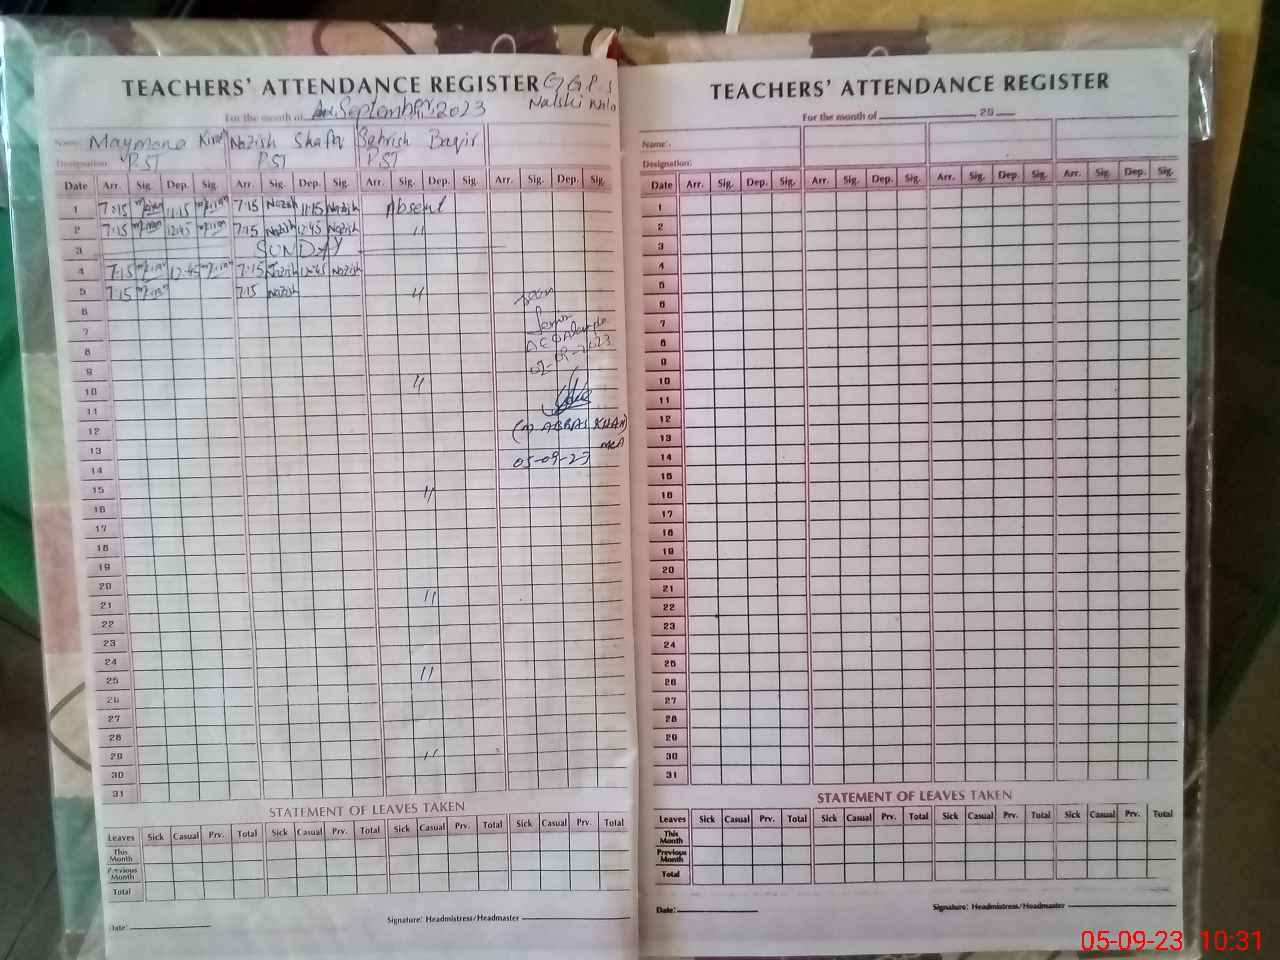 TEACHERS' ATTENDANCE REGISTER G.G.P.S
For the month of September 2023
Name: Maymona Kiran Nazish Shafa Sehrish Baqir
Designation: PST PST PST
Date Arr. Sig. Dep. Sig. Arr. Sig. Dep. Sig. Arr. Sig. Dep. Sig. Arr. Sig. Dep. Sig.
1 7:15 m/kiran 11:15 m/kiran 7:15 Nazish 11:15 Nazish Absent
2 7:15 m/kiran 12:45 m/kiran 7:15 Nazish 12:45 Nazish "
3 SUNDAY
4 7:15 m/kiran 12:45 m/kiran 7:15 Nazish 12:45 Nazish
5 7:15 m/kiran 7:15 Nazish "
6
7
8
9
10 "
11
12 ABBAS KHAN)
13 MEA
14 05-09-23
15 "
16
17
18
19
20
21 "
22
23
24
25 "
26
27
28
29 "
30
31
STATEMENT OF LEAVES TAKEN
Leaves Sick Casual Prv. Total Sick Casual Prv. Total Sick Casual Prv. Total Sick Casual Prv. Total
This Month
Previous Month
Total
Date: Signature: Headmistress/Headmaster
TEACHERS' ATTENDANCE REGISTER
For the month of 20
Name:
Designation:
Date Arr. Sig. Dep. Sig. Arr. Sig. Dep. Sig. Arr. Sig. Dep. Sig. Arr. Sig. Dep. Sig.
1
2
3
4
5
6
7
8
9
10
11
12
13
14
15
16
17
18
19
20
21
22
23
24
25
26
27
28
29
30
31
STATEMENT OF LEAVES TAKEN
Leaves Sick Casual Prv. Total Sick Casual Prv. Total Sick Casual Prv. Total Sick Casual Prv. Total
This Month
Previous Month
Total
Date: Signature: Headmistress/Headmaster
05-09-23 10:31